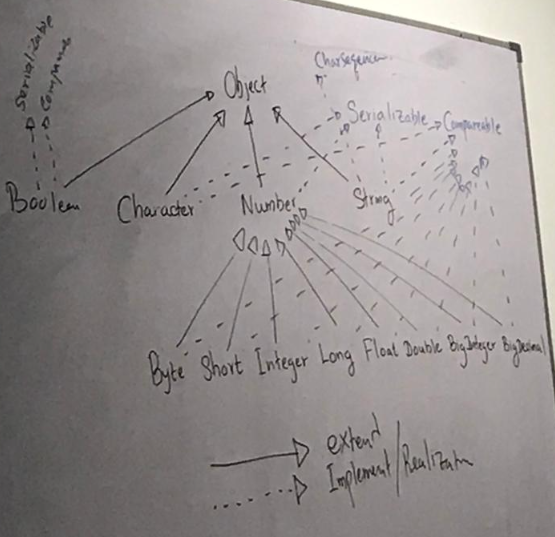 Serializable
Charsequence
Object
Serializable
Compareable
Boolean
Character
Number
String
Byte
Short
Integer
Long
Float
Double
BigInteger
BigDecimal
extend
Implement/